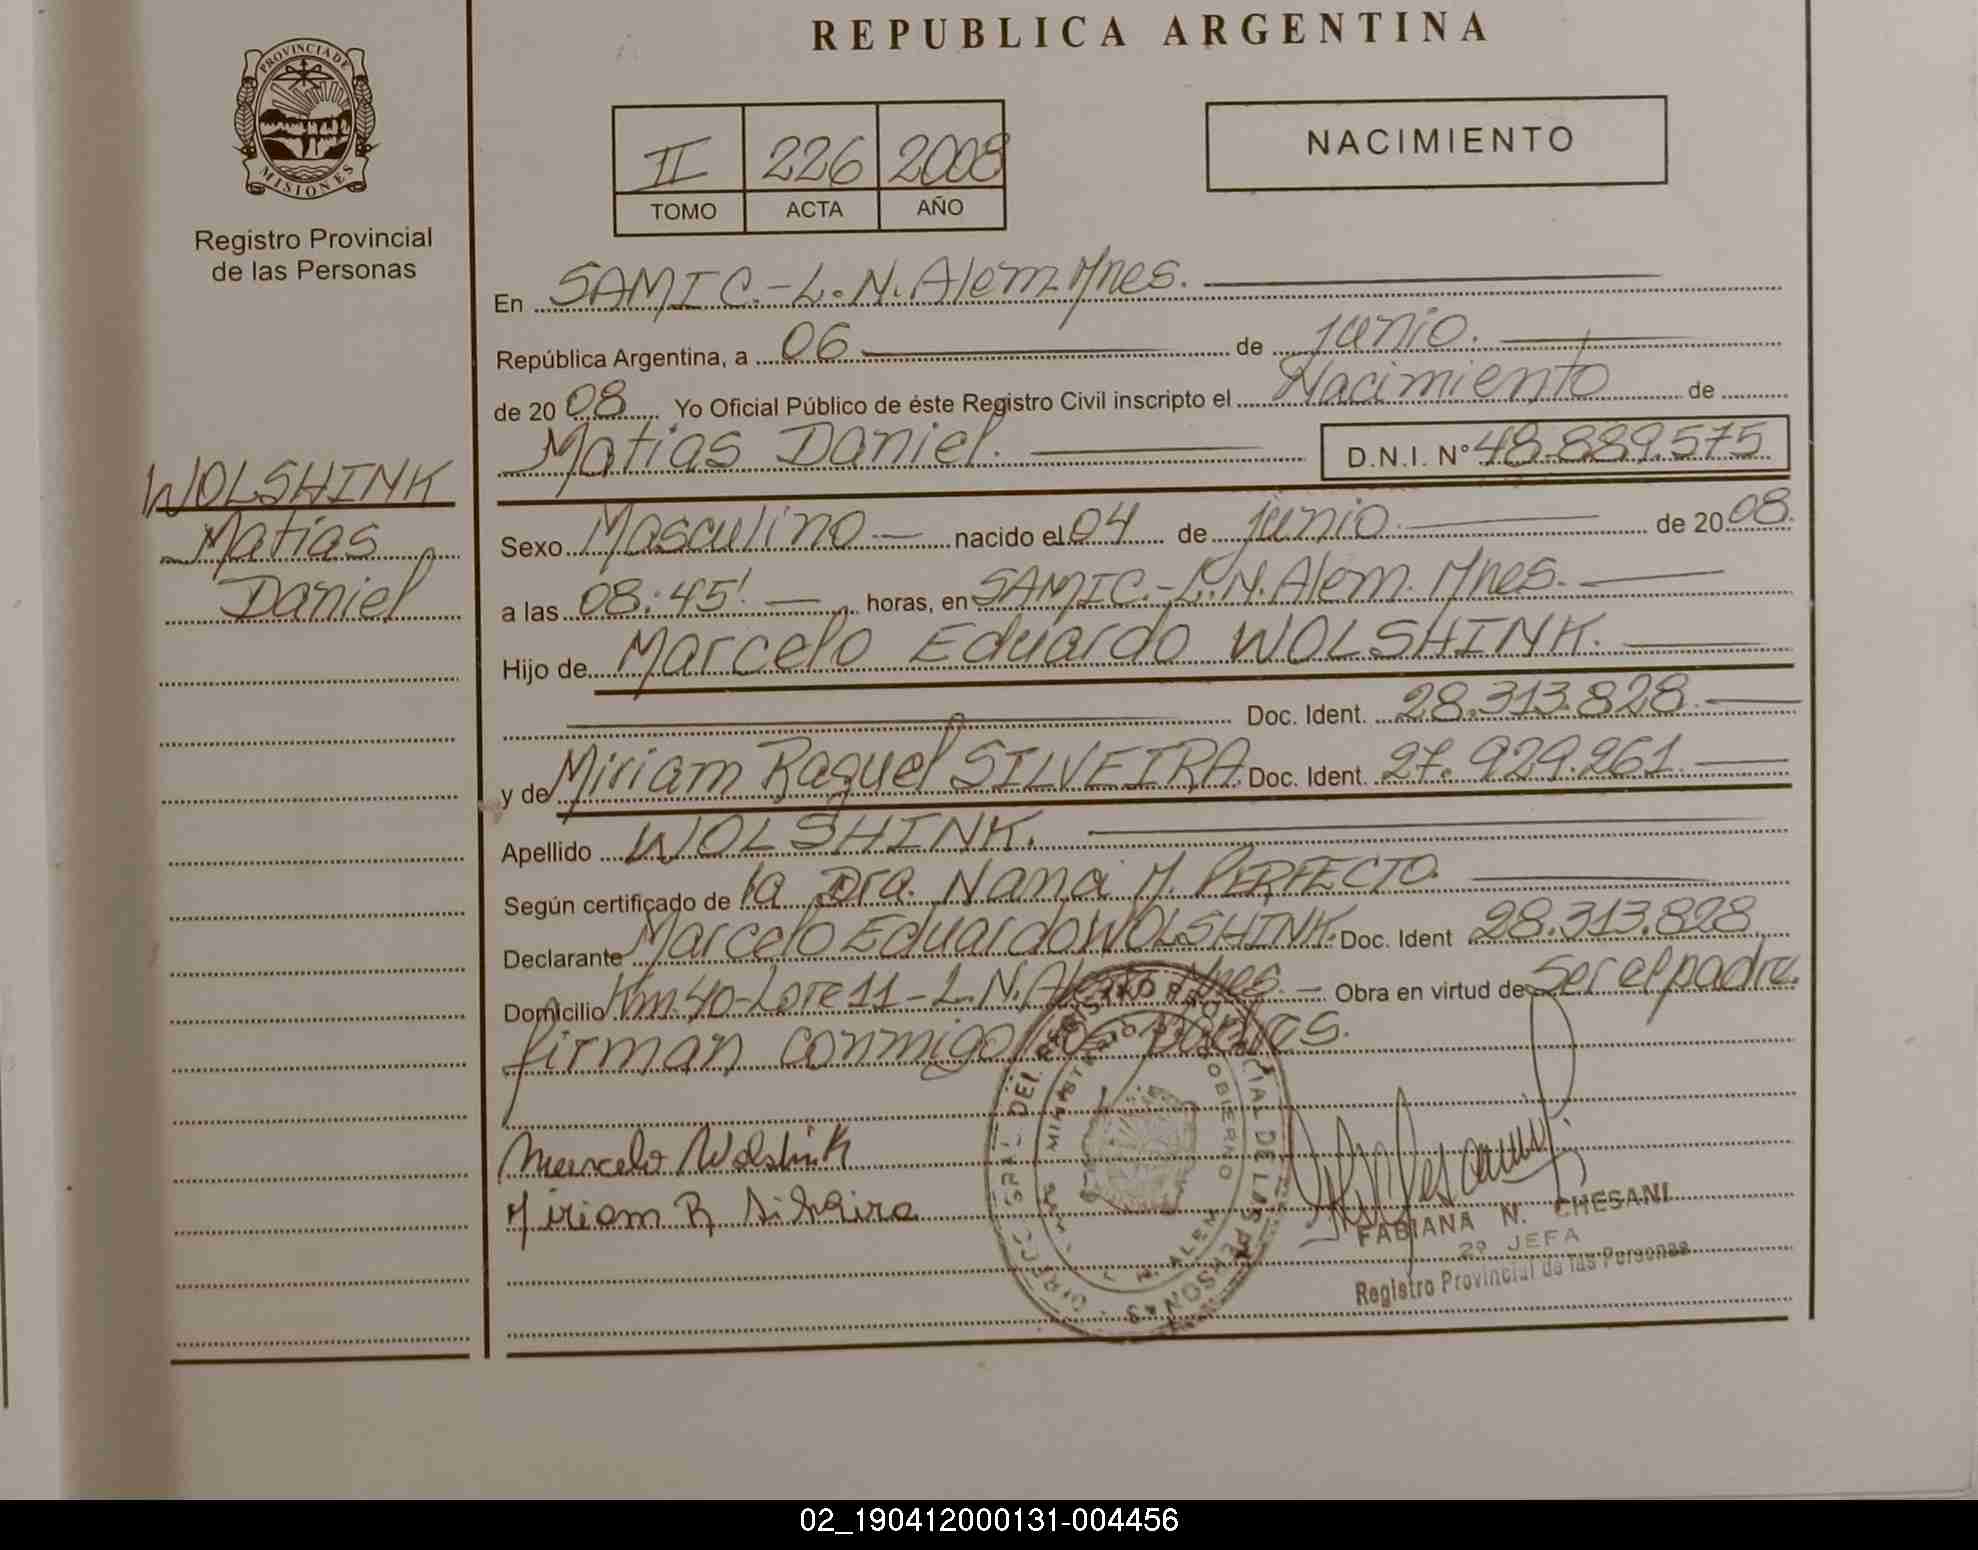 REPUBLICA ARGENTINA
PROVINCIA DE
MISIONES
Registro Provincial
de las Personas
II 226 2008
TOMO ACTA AÑO
NACIMIENTO
En SAMIC.-L.N. Alem. Mnes.
República Argentina, a 06 de junio.
de 2008 Yo Oficial Público de éste Registro Civil inscripto el Nacimiento de
Matias Daniel. D.N.I. Nº 48.889.575
WOLSHINK
Matias
Daniel
Sexo Masculino nacido el 04 de junio. de 2008.
a las 08:45'. horas, en SAMIC.-L.N. Alem. Mnes.
Hijo de Marcelo Eduardo WOLSHINK.
Doc. Ident. 28.313.828.
y de Miriam Raquel SILVEIRA. Doc. Ident. 27.929.261.
Apellido WOLSHINK.
Según certificado de la Dra. Nanci M. PERFECTO.
Declarante Marcelo Eduardo WOLSHINK. Doc. Ident 28.313.828
Domicilio Km.40-Lote 11-L.N. Alem. Mnes. Obra en virtud de Ser el padre.
firman conmigo los padres.
Marcelo Wolshink
Miriam R Silveira
FABIANA N. CHESANI
2º JEFA
Registro Provincial de las Personas
02_190412000131-004456